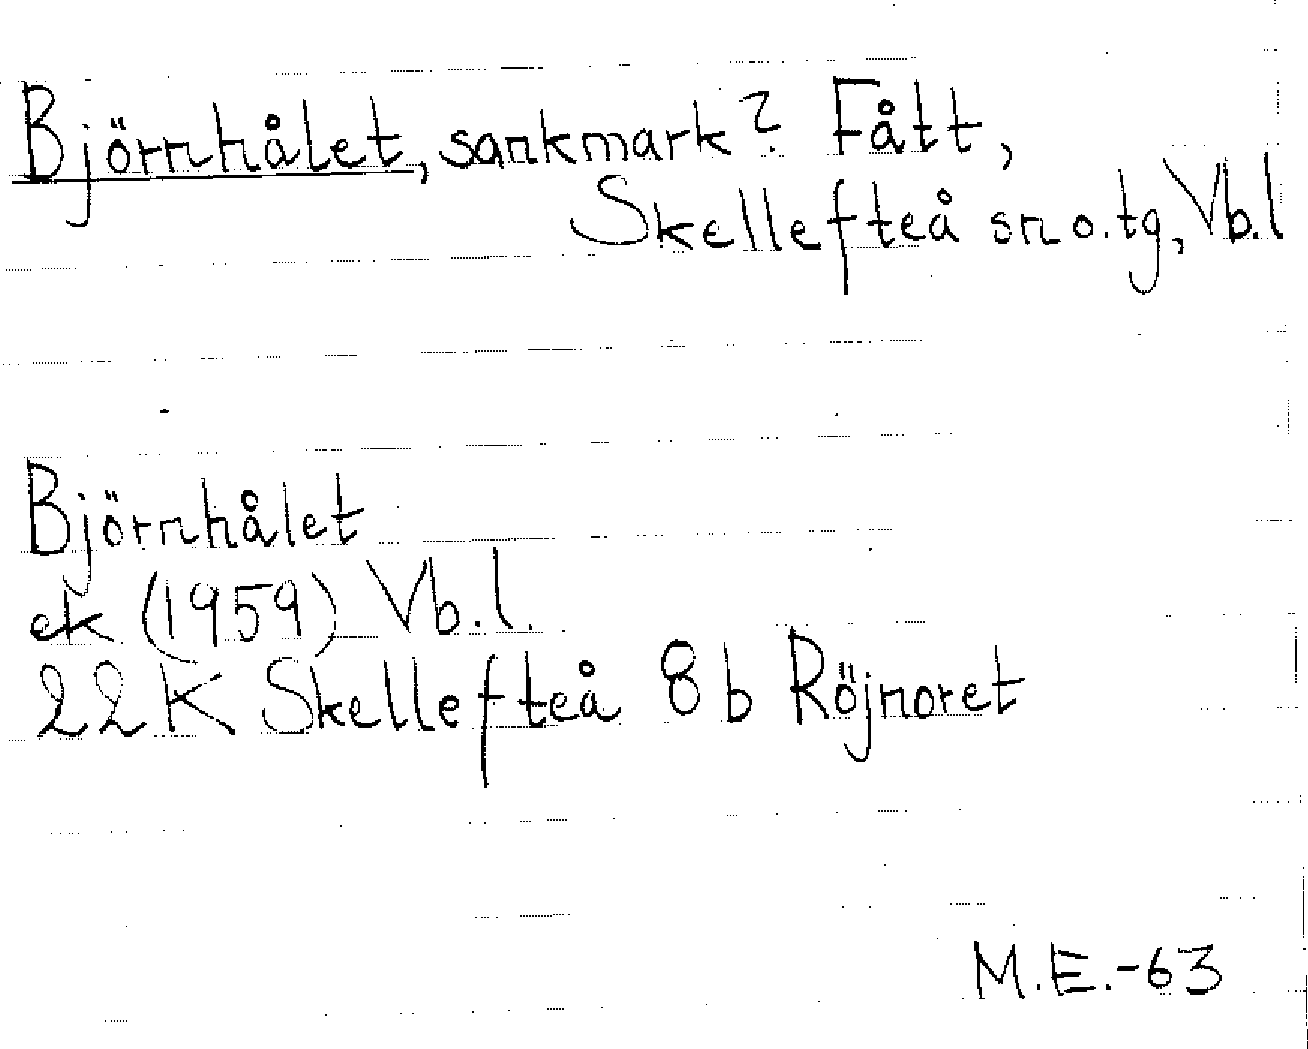 Björnhålet, sankmark? Fått,
Skellefteå sn o. tg, Vb.l
Björnhålet
ek (1959) Vb.l.
22K Skellefteå 8b Röjnoret
M.E.-63